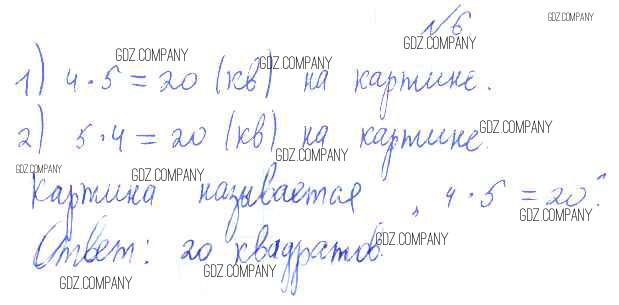 №6
1) 4 · 5 = 20 (кв) на картине.
2) 5 · 4 = 20 (кв) на картине.
Картина называется „4 · 5 = 20".
Ответ: 20 квадратов.
GDZ.COMPANY
GDZ.COMPANY
GDZ.COMPANY
GDZ.COMPANY
GDZ.COMPANY
GDZ.COMPANY
GDZ.COMPANY
GDZ.COMPANY
GDZ.COMPANY
GDZ.COMPANY
GDZ.COMPANY
GDZ.COMPANY